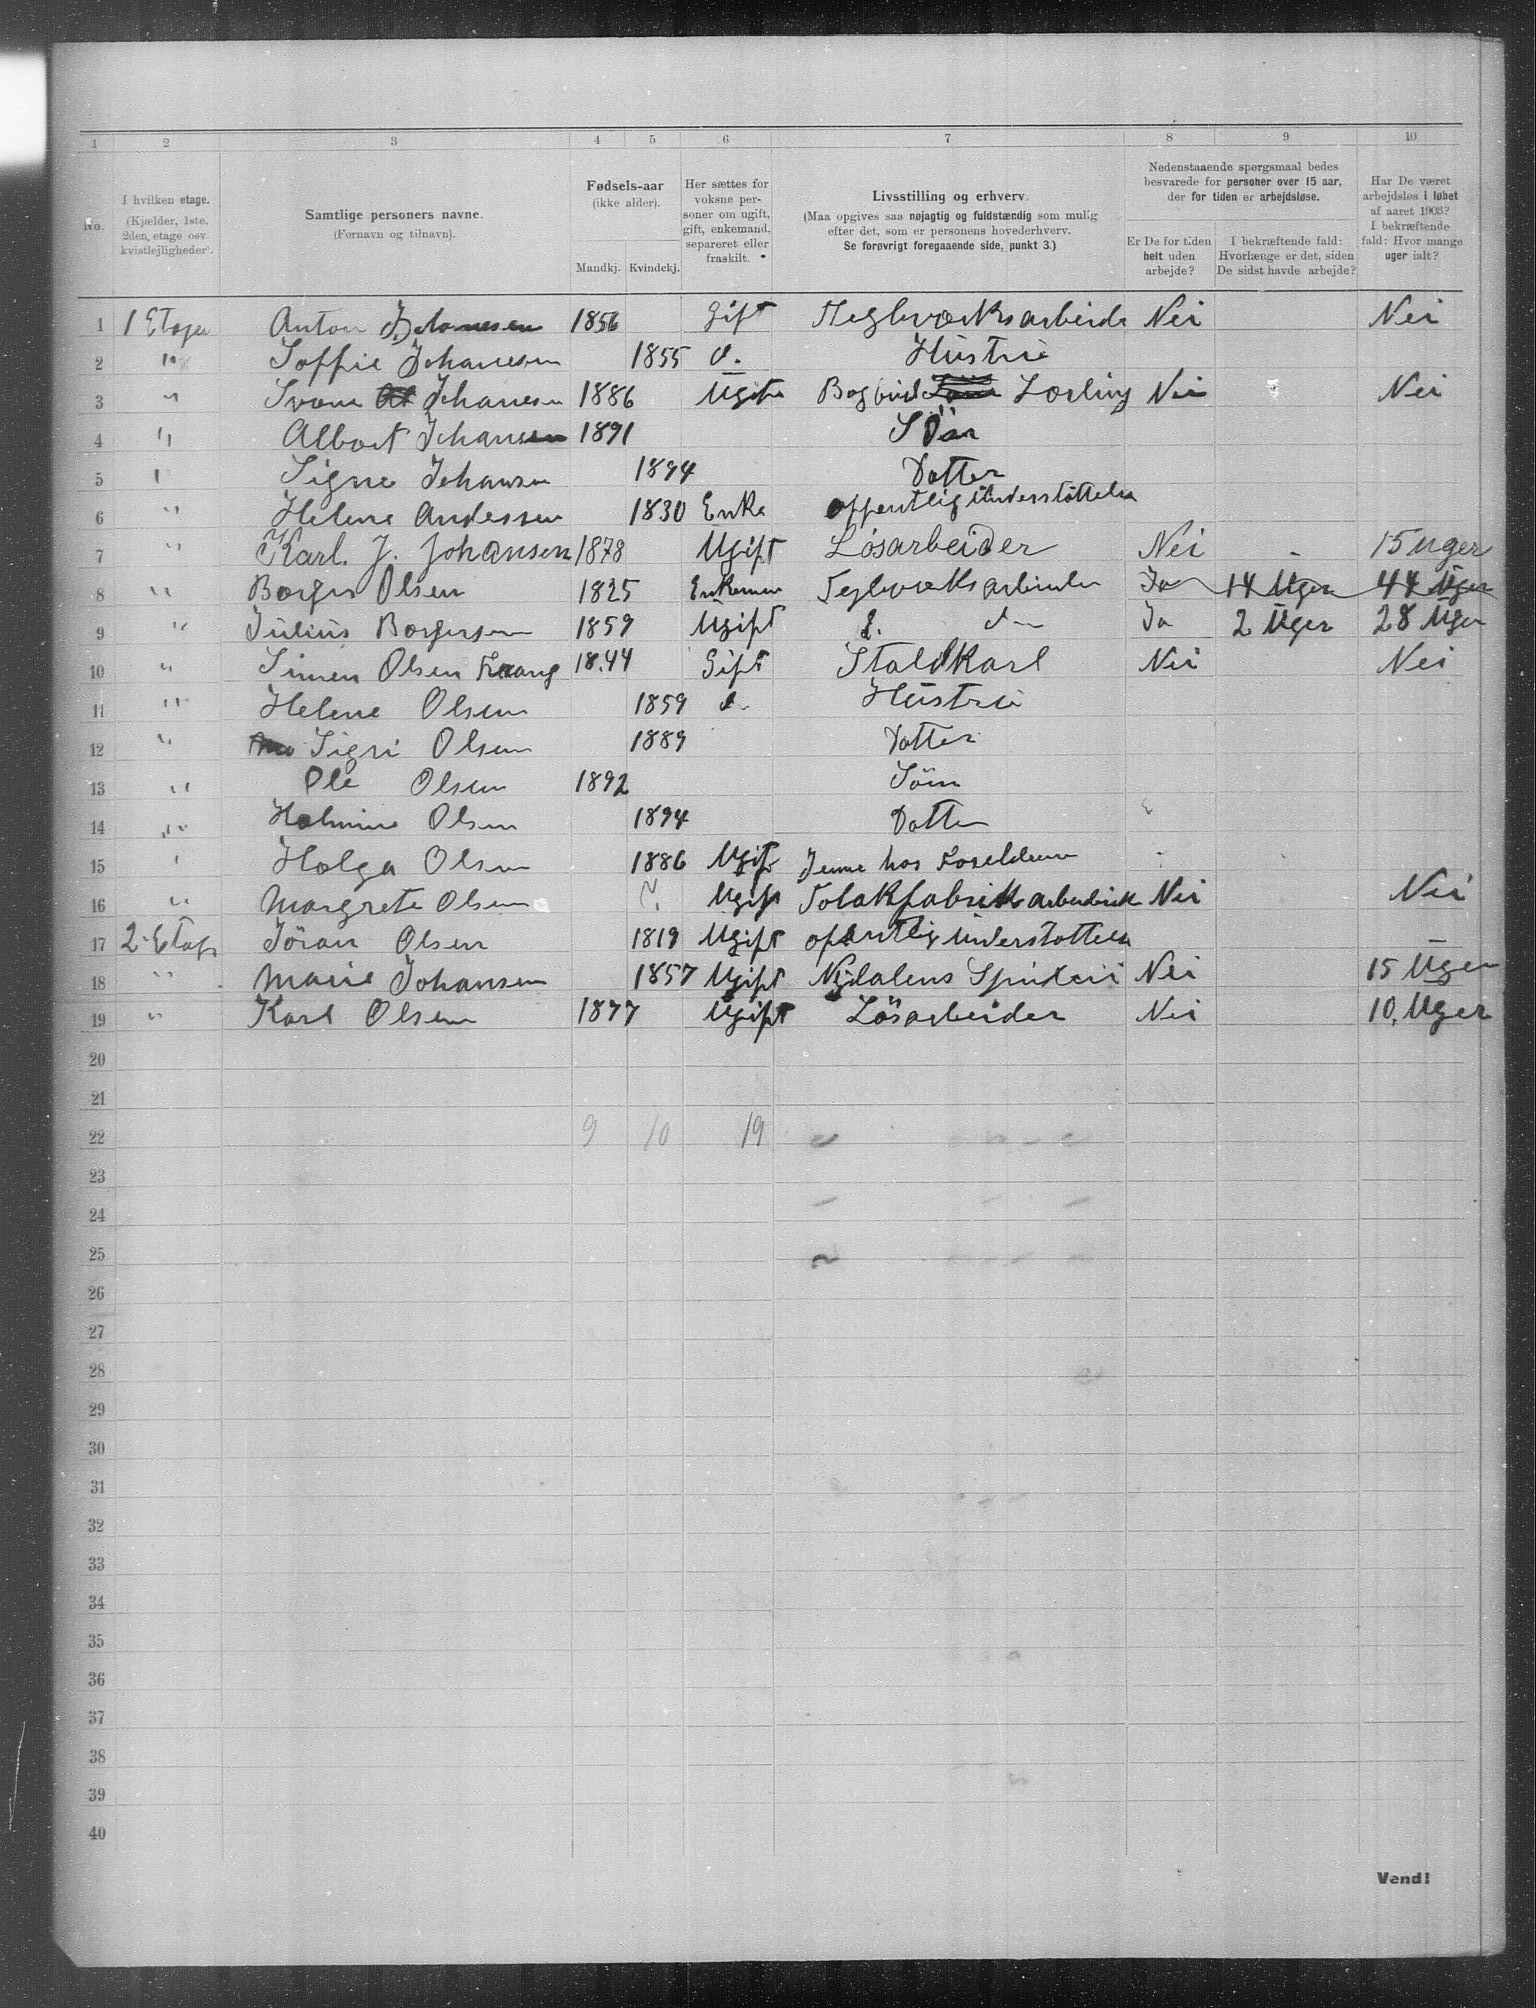 1 2 3 4 5 6 7 8 9 10
No.
I hvilken etage. (Kjælder, 1ste, 2den, etage osv. kvistlejligheder).
Samtlige personers navne. (Fornavn og tilnavn).
Fødsels-aar (ikke alder). Mandkj. Kvindekj.
Her sættes for voksne personer om ugift, gift, enkemand, separeret eller fraskilt.
Livsstilling og erhverv. (Maa opgives saa nøjagtig og fuldstændig som mulig efter det, som er personens hovederhverv. Se forøvrigt foregaaende side, punkt 3.)
Nedenstaaende spørgsmaal bedes besvarede for personer over 15 aar, der for tiden er arbejdsløse.
Er De for tiden helt uden arbejde?
I bekræftende fald: Hvorlænge er det, siden De sidst havde arbejde?
Har De været arbejdsløs i løbet af aaret 1903? I bekræftende fald: Hvor mange uger ialt?
1 1 Etage Anton Johanesen 1856 Gift Teglværksarbeide Nei Nei
2 " Soffie Johanesen 1855 d. Hüstrü
3 " Johanesen 1886 Ugift Bogbinde Lærling Nei Nei
4 " Albert Johansen 1891 Sön
5 " Signe Johansen 1894 Datter
6 " Helene Anderssen 1830 Enke offentlig Understöttelse
7 " Karl. J. Johansen 1878 Ugift Løsarbeider Nei - 15 Uger
8 " Borger Olsen 1825 Enkeman Teglværksarbeider Ja 14 Uger 44 Uger
9 " Julius Borgersen 1859 Ugift d. Ja 2 Uger 28 Uger
10 " Simen Olsen 1844 Gift Staldkarl Nei Nei
11 " Helene Olsen 1859 d. Hüstrü
12 " Sigri Olsen 1889 Datter
13 " Ole Olsen 1892 Sön
14 " Halmine Olsen 1894 Datter
15 " Helga Olsen 1886 Ugift Jemme hos Foreldrene
16 " Margrete Olsen Ugift Tobakfabrik Nei Nei
17 2 Etage Jöran Olsen 1819 Ugift ofentlig Understottelse -
18 " Marie Johansen 1857 Ugift Nydalens Spinderi Nei 15 Uger
19 " Karl Olsen 1877 Ugift Lösarbeider Nei 10. Uger
20
21
22 9 10 19
23
24
25
26
27
28
29
30
31
32
33
34
35
36
37
38
39
40
Vend!